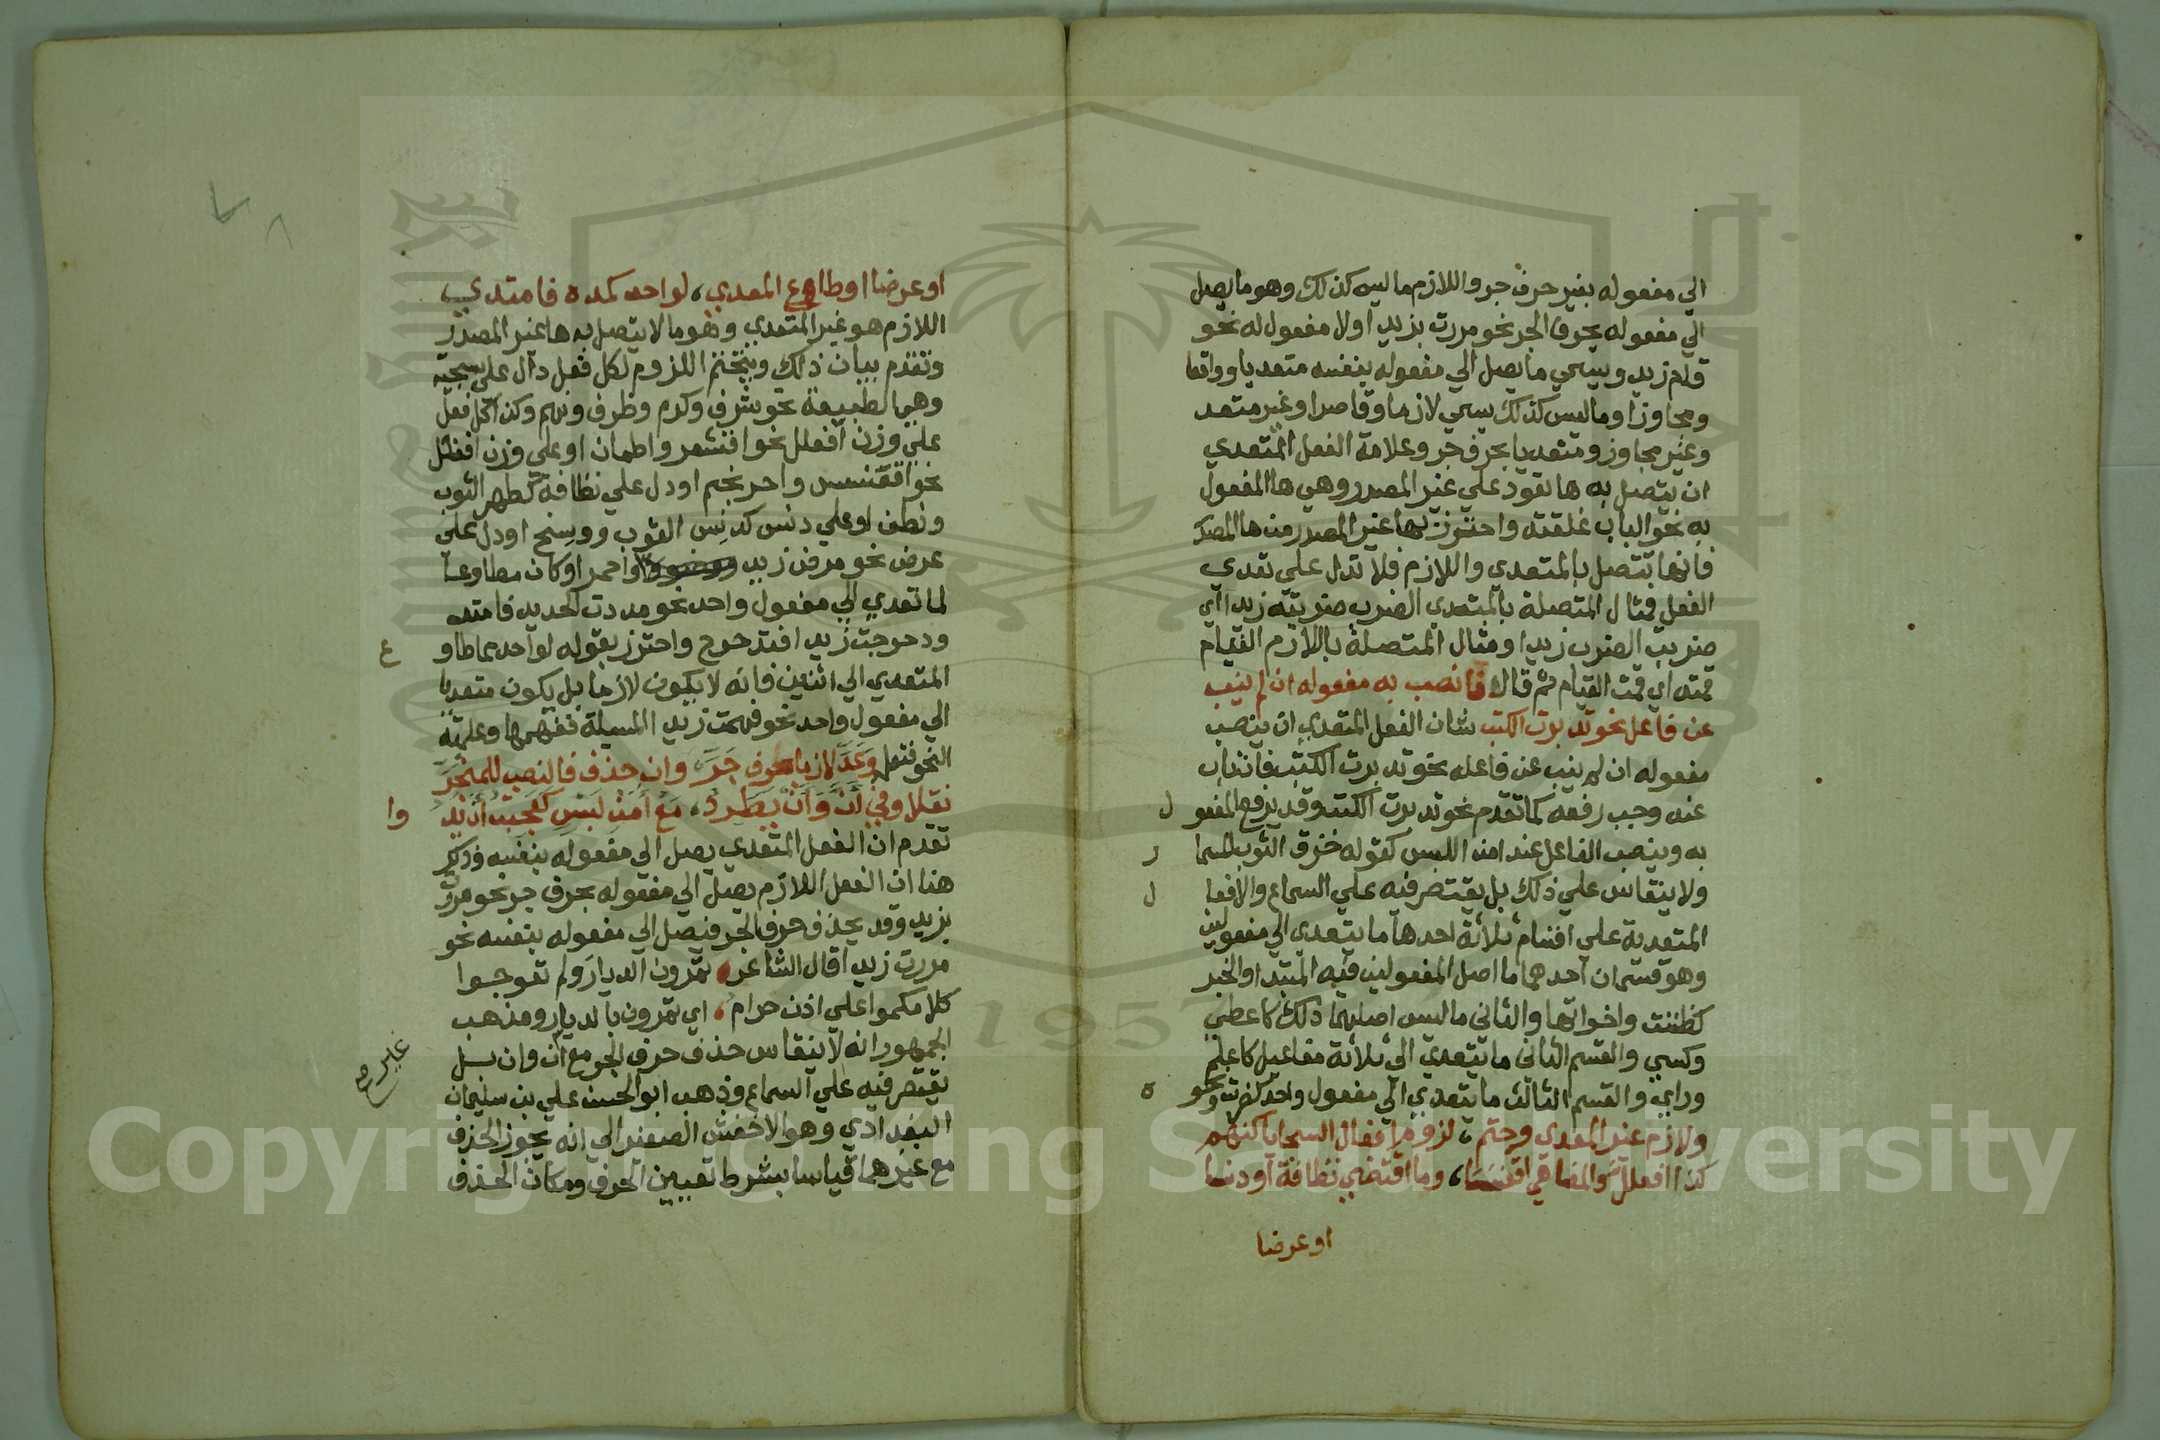 الي مفعوله بغير حرف جر واللازم ماليس كذلك وهو ما يصل
الي مفعوله بحرف الجر نحو مررت بزيد اولا مفعول له نحو
قام زيد ويسمي ما يصل الي مفعوله بنفسه متعديا وواقعا
ومجاوزا وما ليس كذلك يسمي لازما وقاصرا وغير متعد
وغير مجاوز ومتعديا بحرف جر وعلامة الفعل المتعدي
ان يتصل به ها تعود علي غير المصدر وهي ها المفعول
به نحو الباب غلقته واحترز بها غير المصدر من ها المصدر
فانها تتصل بالمتعدي واللازم فلا تدل علي تعدي
الفعل فمثال المتصلة بالمتعدي الضرب ضربته زيدا اي
ضربت الضرب زيدا ومثال المتصلة باللازم القيام
قمته اي قمت القيام ثم قال فانصب به مفعوله ان لم ينب
عن فاعل نحو تدبرت الكتب شان الفعل المتعدي ان ينصب
مفعوله ان لم ينب عن فاعله نحو تدبرت الكتب فان ناب
عنه وجب رفعه كما تقدم نحو تدبرت الكتب وقد يرفع المفعو ل
به وينصب الفاعل عند امن اللبس كقوله خرق الثوب المسما ر
ولا ينقاس علي ذلك بل يقتصر فيه علي السماع والافعا ل
المتعدية علي اقسام ثلاثة احدها ما يتعدي الي مفعولين
وهو قسمان احدهما ما اصل المفعولين فيه المبتدا والخبر
كظننت واخواتها والثاني ما ليس اصلهما ذلك كاعطي
وكسي والقسم الثاني ما يتعدي الي ثلاثة مفاعيل كاعلم
وراي والقسم الثالث ما يتعدي الي مفعول واحد كضرب ونحو ه
ولازم غير المعدي وحتم ، لزوم افعال السجايا كنهم
كذا افعلل والمضاهي اقعنسسا ، وما اقتضي نظافة او دنسا
او عرضا
او عرضا او طاوع المعدي ، لواحد كمده فامتدي
اللازم هو غير المتعدي وهو ما لا يتصل به ها غير المصدر
وتقدم بيان ذلك ويتحتم اللزوم لكل فعل دال علي سجية
وهي الطبيعة نحو شرف وكرم وظرف ونهم وكذا كل فعل
علي وزن افعلل نحو اقشعر واطمان او علي وزن افعنلل
نحو اقعنسس واحرنجم او دل علي نظافة كطهر الثوب
ونظف او علي دنس كدنس الثوب ووسخ او دل علي
عرض نحو مرض زيد واحمر او كان مطاوعا
لما تعدي الي مفعول واحد نحو مددت الحديد فامتد
ودحرجت زيدا فتدحرج واحترز بقوله لواحد مما طاو ع
المتعدي الي اثنين فانه لا يكون لازما بل يكون متعديا
الي مفعول واحد نحو فهمت زيدا المسيلة ففهمها وعلمته
النحو فتعلمه وعد لازما بحرف جر وان حذف فالنصب للمنجر
نقلا وفي ان وان يطرد ، مع امن لبس كعجبت ان يد وا
تقدم ان الفعل المتعدي يصل الي مفعوله بنفسه وذكر
هنا ان الفعل اللازم يصل الي مفعوله بحرف جر نحو مررت
بزيد وقد يحذف حرف الجر فيصل الي مفعوله بنفسه نحو
مررت زيدا قال الشاعر تمرون الديار ولم تعوجوا
كلامكموا علي اذن حرام ، اي تمرون بالديار ومذهب
الجمهور انه لا ينقاس حذف حرف الجر مع ان وان بل
يقتصر فيه علي السماع وذهب ابو الحسن علي بن سليمان
البغدادي وهو الاخفش الصغير الي انه يجوز الحذف
مع غيرهما قياسا بشرط تعيين الحرف ومكان الحذف
Copyright © King Saud University
1957